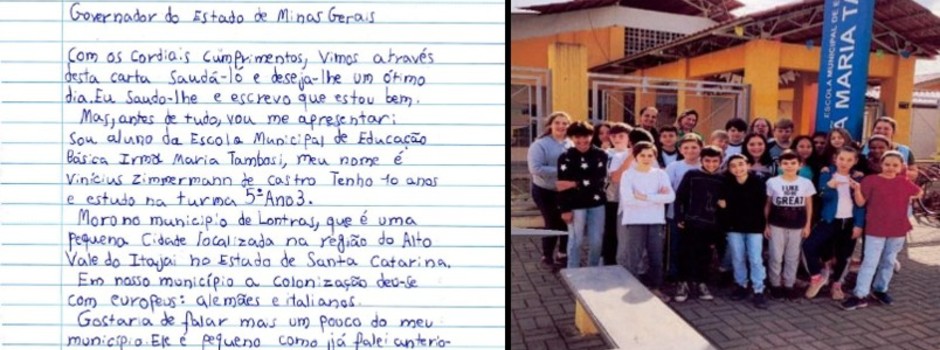 Governador do Estado de Minas Gerais
Com os Cordiais Cumprimentos, Vimos através
desta carta Saudá-ló e deseja-lhe um ótimo
dia. Eu Saudo-lhe e escrevo que estou bem.
Mas, antes de tudo, vou me apresentar:
Sou aluno da Escola Municipal de Educação
Básica Irmã Maria Tambosi, meu nome é
Vinícius Zimmermann de Castro Tenho 10 anos
e estudo na turma 5º Ano 3.
Moro no município de Lontras, que é uma
pequena Cidade localizada na região do Alto
Vale do Itajaí no Estado de Santa Catarina.
Em nosso município a Colonização deu-se
com europeus: alemães e italianos.
Gostaria de falar mais um pouco do meu
município. Ele é pequeno como já falei anterio-
ESCOLA MUNICIPAL DE E
MARIA TA
GREAT